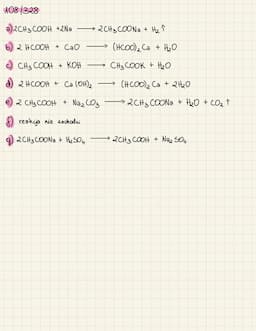 108/328
a) 2CH₃COOH + 2Na → 2CH₃COONa + H₂ ↑
b) 2 HCOOH + CaO → (HCOO)₂ Ca + H₂O
c) CH₃COOH + KOH → CH₃COOK + H₂O
d) 2 HCOOH + Ca(OH)₂ → (HCOO)₂ Ca + 2H₂O
e) 2 CH₃COOH + Na₂CO₃ → 2CH₃COONa + H₂O + CO₂ ↑
f) reakcja nie zachodzi
g) 2CH₃COONa + H₂SO₄ → 2CH₃COOH + Na₂SO₄